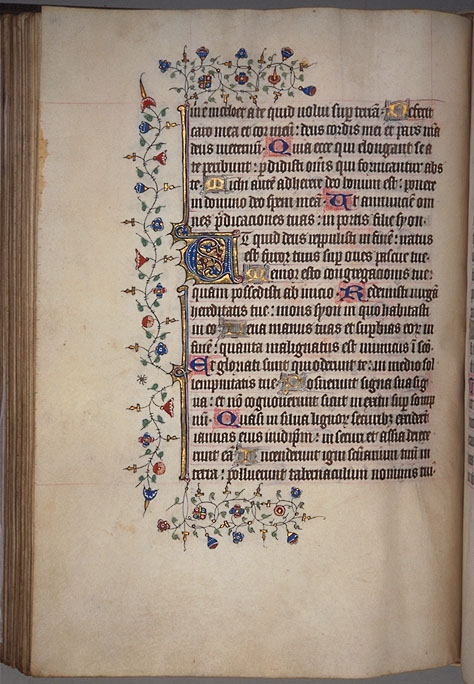 in celo et a te quid volui sup terrā. Defecit
caro mea et cor meū: deus cordis mei et pars mea
deus in eternū. Quia ecce qui elongant se a
te peribunt: pdidisti oms qui fornicantur abs
te. Michi autē adherere deo bonum est: ponere
in domino deo spem meā. Ut annunciem om
nes pdicationes tuas: in portis filie syon.
Ut quid deus repulisti in finē: iratus
est furor tuus sup oves pascue tue.
Memor esto congregacionis tue:
quam possedisti ab inicio. Redemisti virgā
hereditatis tue: mons syon in quo habitasti
in eo. Leva manus tuas et supbias eor in
finē: quanta malignatus est inimicus ī sco.
Et gloriati sunt qui oderunt te: in medio sol
lempnitatis tue. Posuerunt signa sua sig
na: et nō cognoverunt sicut in exitu sup somp
mū. Quasi in silva lignor securibz exciderūt
ianuas eius in idipsm: in securi et ascia deiece
runt eā. Incenderunt igni sctuarium tuū in
terra: polluerunt tabernaculum nominis tui.